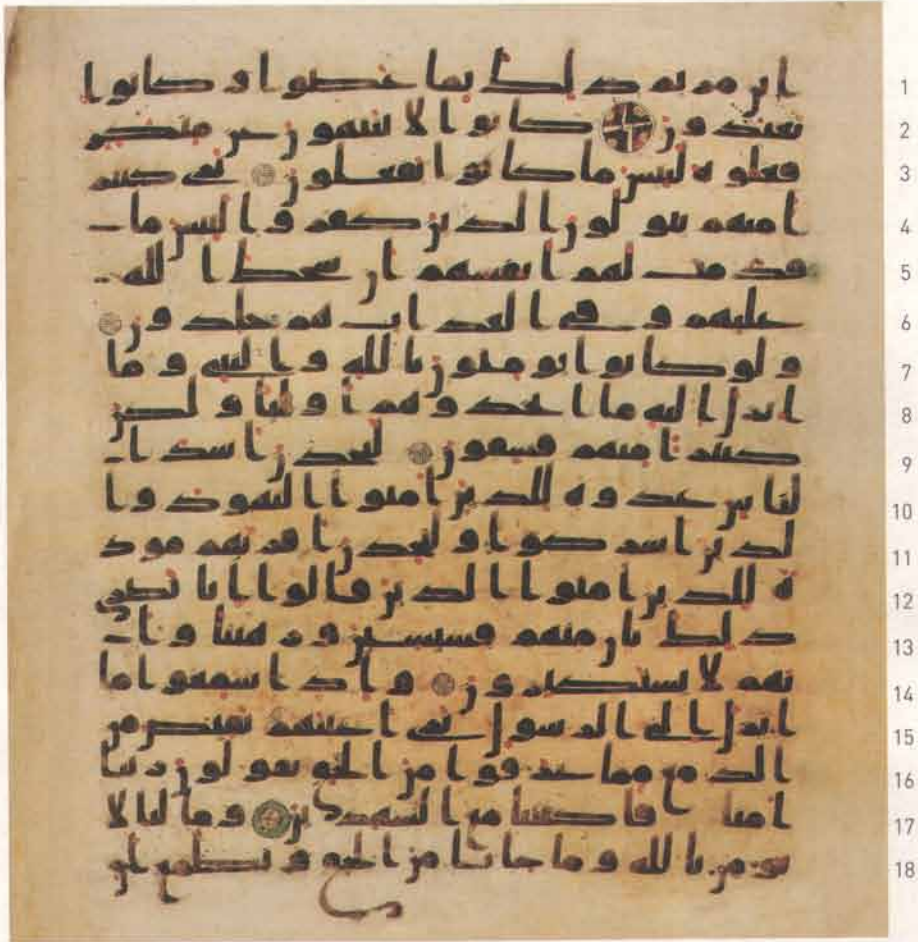 ابن مريم ذلك بما عصوا وكانوا 1
يعتدون كانوا لا يتنهون عن منكر 2
فعلوه لبيس ما كانوا يفعلون ترى كثير 3
ا منهم يتولون الذين كفروا لبيس ما 4
قدمت لهم انفسهم ان سخط الله 5
عليهم وفي العذاب هم خلدون 6
ولو كانوا يومنون بالله والنبي وما 7
انزل اليه ما اتخذوهم اوليا ولكن 8
كثيرا منهم فسقون لتجدن اشد ا 9
لناس عدوه للذين امنوا اليهود وا 10
لذين اشركوا ولتجدن اقربهم مود 11
ه للذين امنوا الذين قالوا انا نصرى 12
ذلك بان منهم قسيسين ورهبنا وا 13
نهم لا يستكبرون واذا سمعوا ما 14
انزل الى الرسول ترى اعينهم تفيض من 15
الدمع مما عرفوا من الحق يقولون ربنا 16
امنا فاكتبنا مع الشهدين وما لنا لا 17
نومن بالله وما جانا من الحق ونطمع ان 18